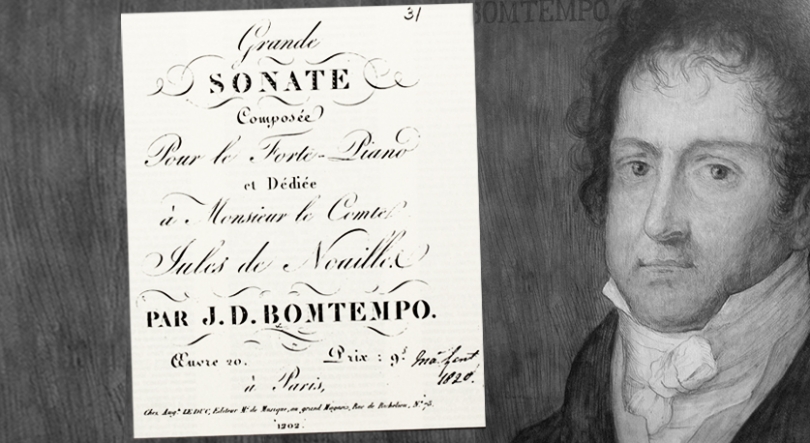 BOMTEMPO
31
Grande
SONATE
Composée
Pour le Forte-Piano
et Dédiée
à Monsieur le Comte
Jules de Noailles
PAR J. D. BOMTEMPO.
Œuvre 20. Prix : 9f
1820.
à Paris,
Chez Augte LEDUC, Editeur Md de Musique, au grand Magasin, Rue de Richelieu, No 78.
1202.